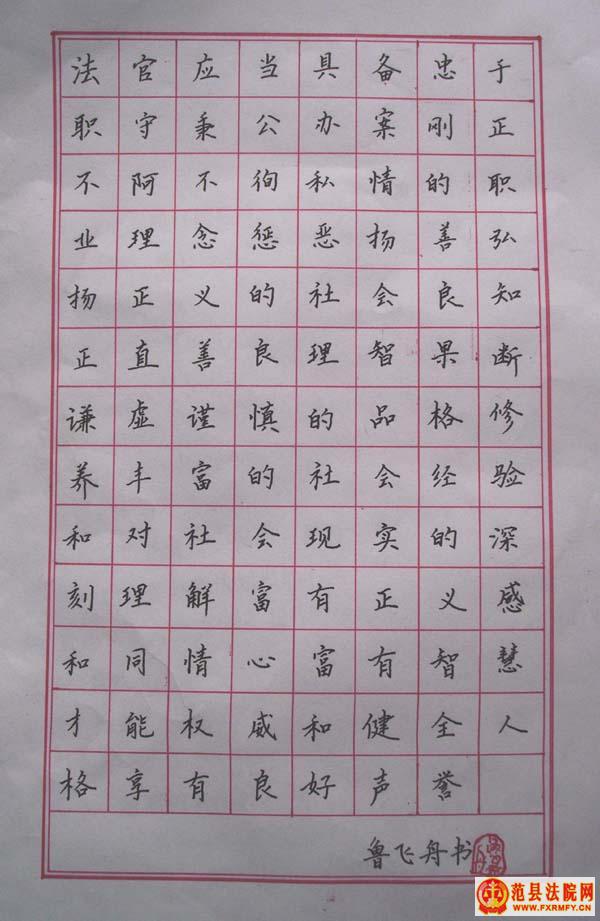 法官应当具备忠于
职守秉公办案刚正
不阿不徇私情的职
业理念惩恶扬善弘
扬正义的社会良知
正直善良理智果断
谦虚谨慎的品格修
养丰富的社会经验
和对社会现实的深
刻理解富有正义感
和同情心富有智慧
才能权威和健全人
格享有良好声誉
鲁飞舟书
范县法院网
WWW.FXRMFY.CN